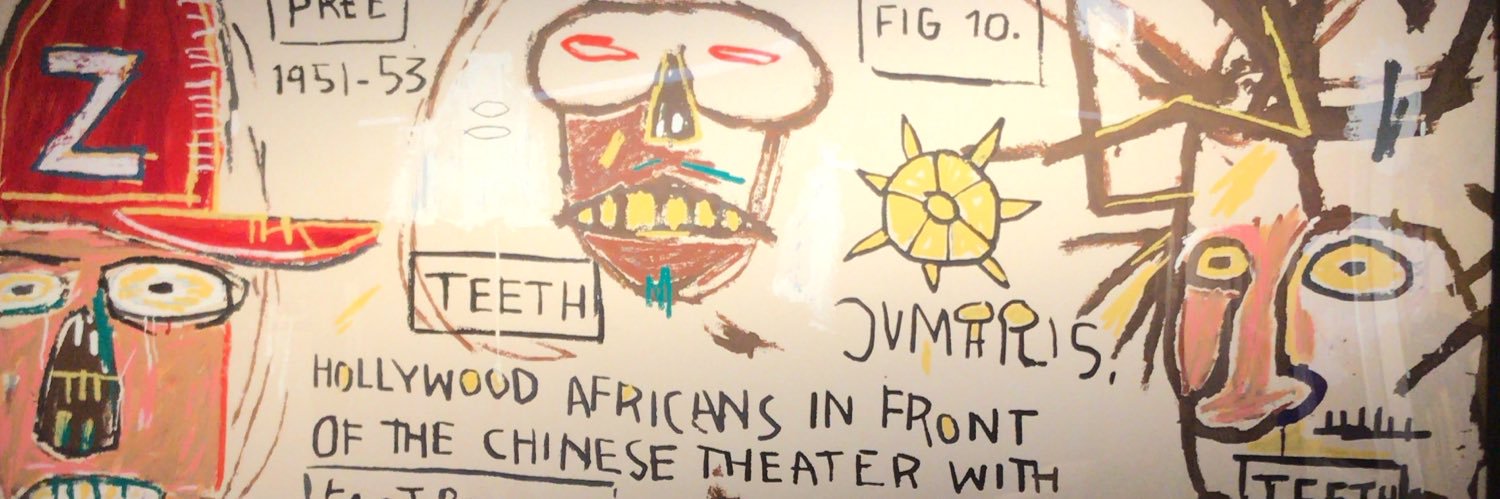 PREE
Z
1951-53
FIG 10.
TEETH
HOLLYWOOD AFRICANS IN FRONT
OF THE CHINESE THEATER WITH
TEETH